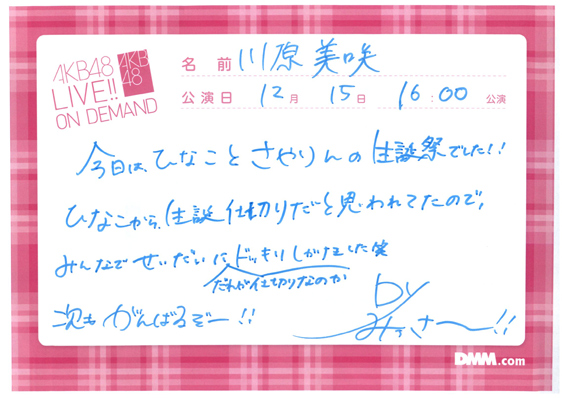 AKB48
LIVE!!
ON DEMAND
AKB
48
名 前 川原美咲
公演日 12月 15日 16:00 公演
今日は、ひなことさやりんの生誕祭でした!!
ひなこから、生誕仕切りだと思われてたので、
みんなでせいだいにドッキリしかけました笑
だれが仕切りなのか
次も がんばるぞー!!
by
みっさー!!
DMM.com